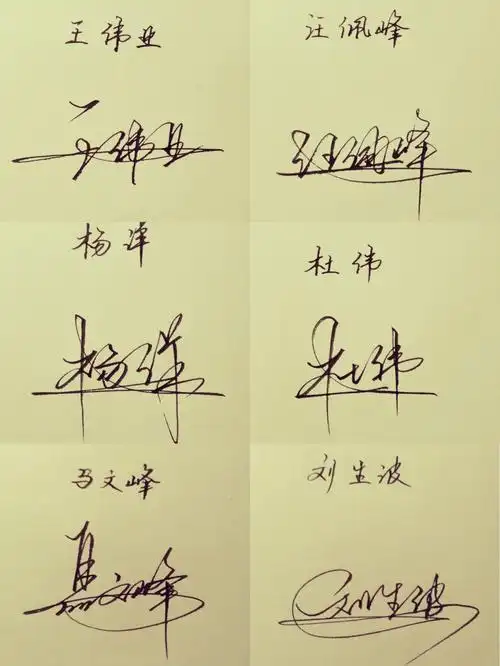 王伟业
王伟业
汪佩峰
汪佩峰
杨谭
杜伟
杜伟
马文峰
马文峰
刘生波
刘生波